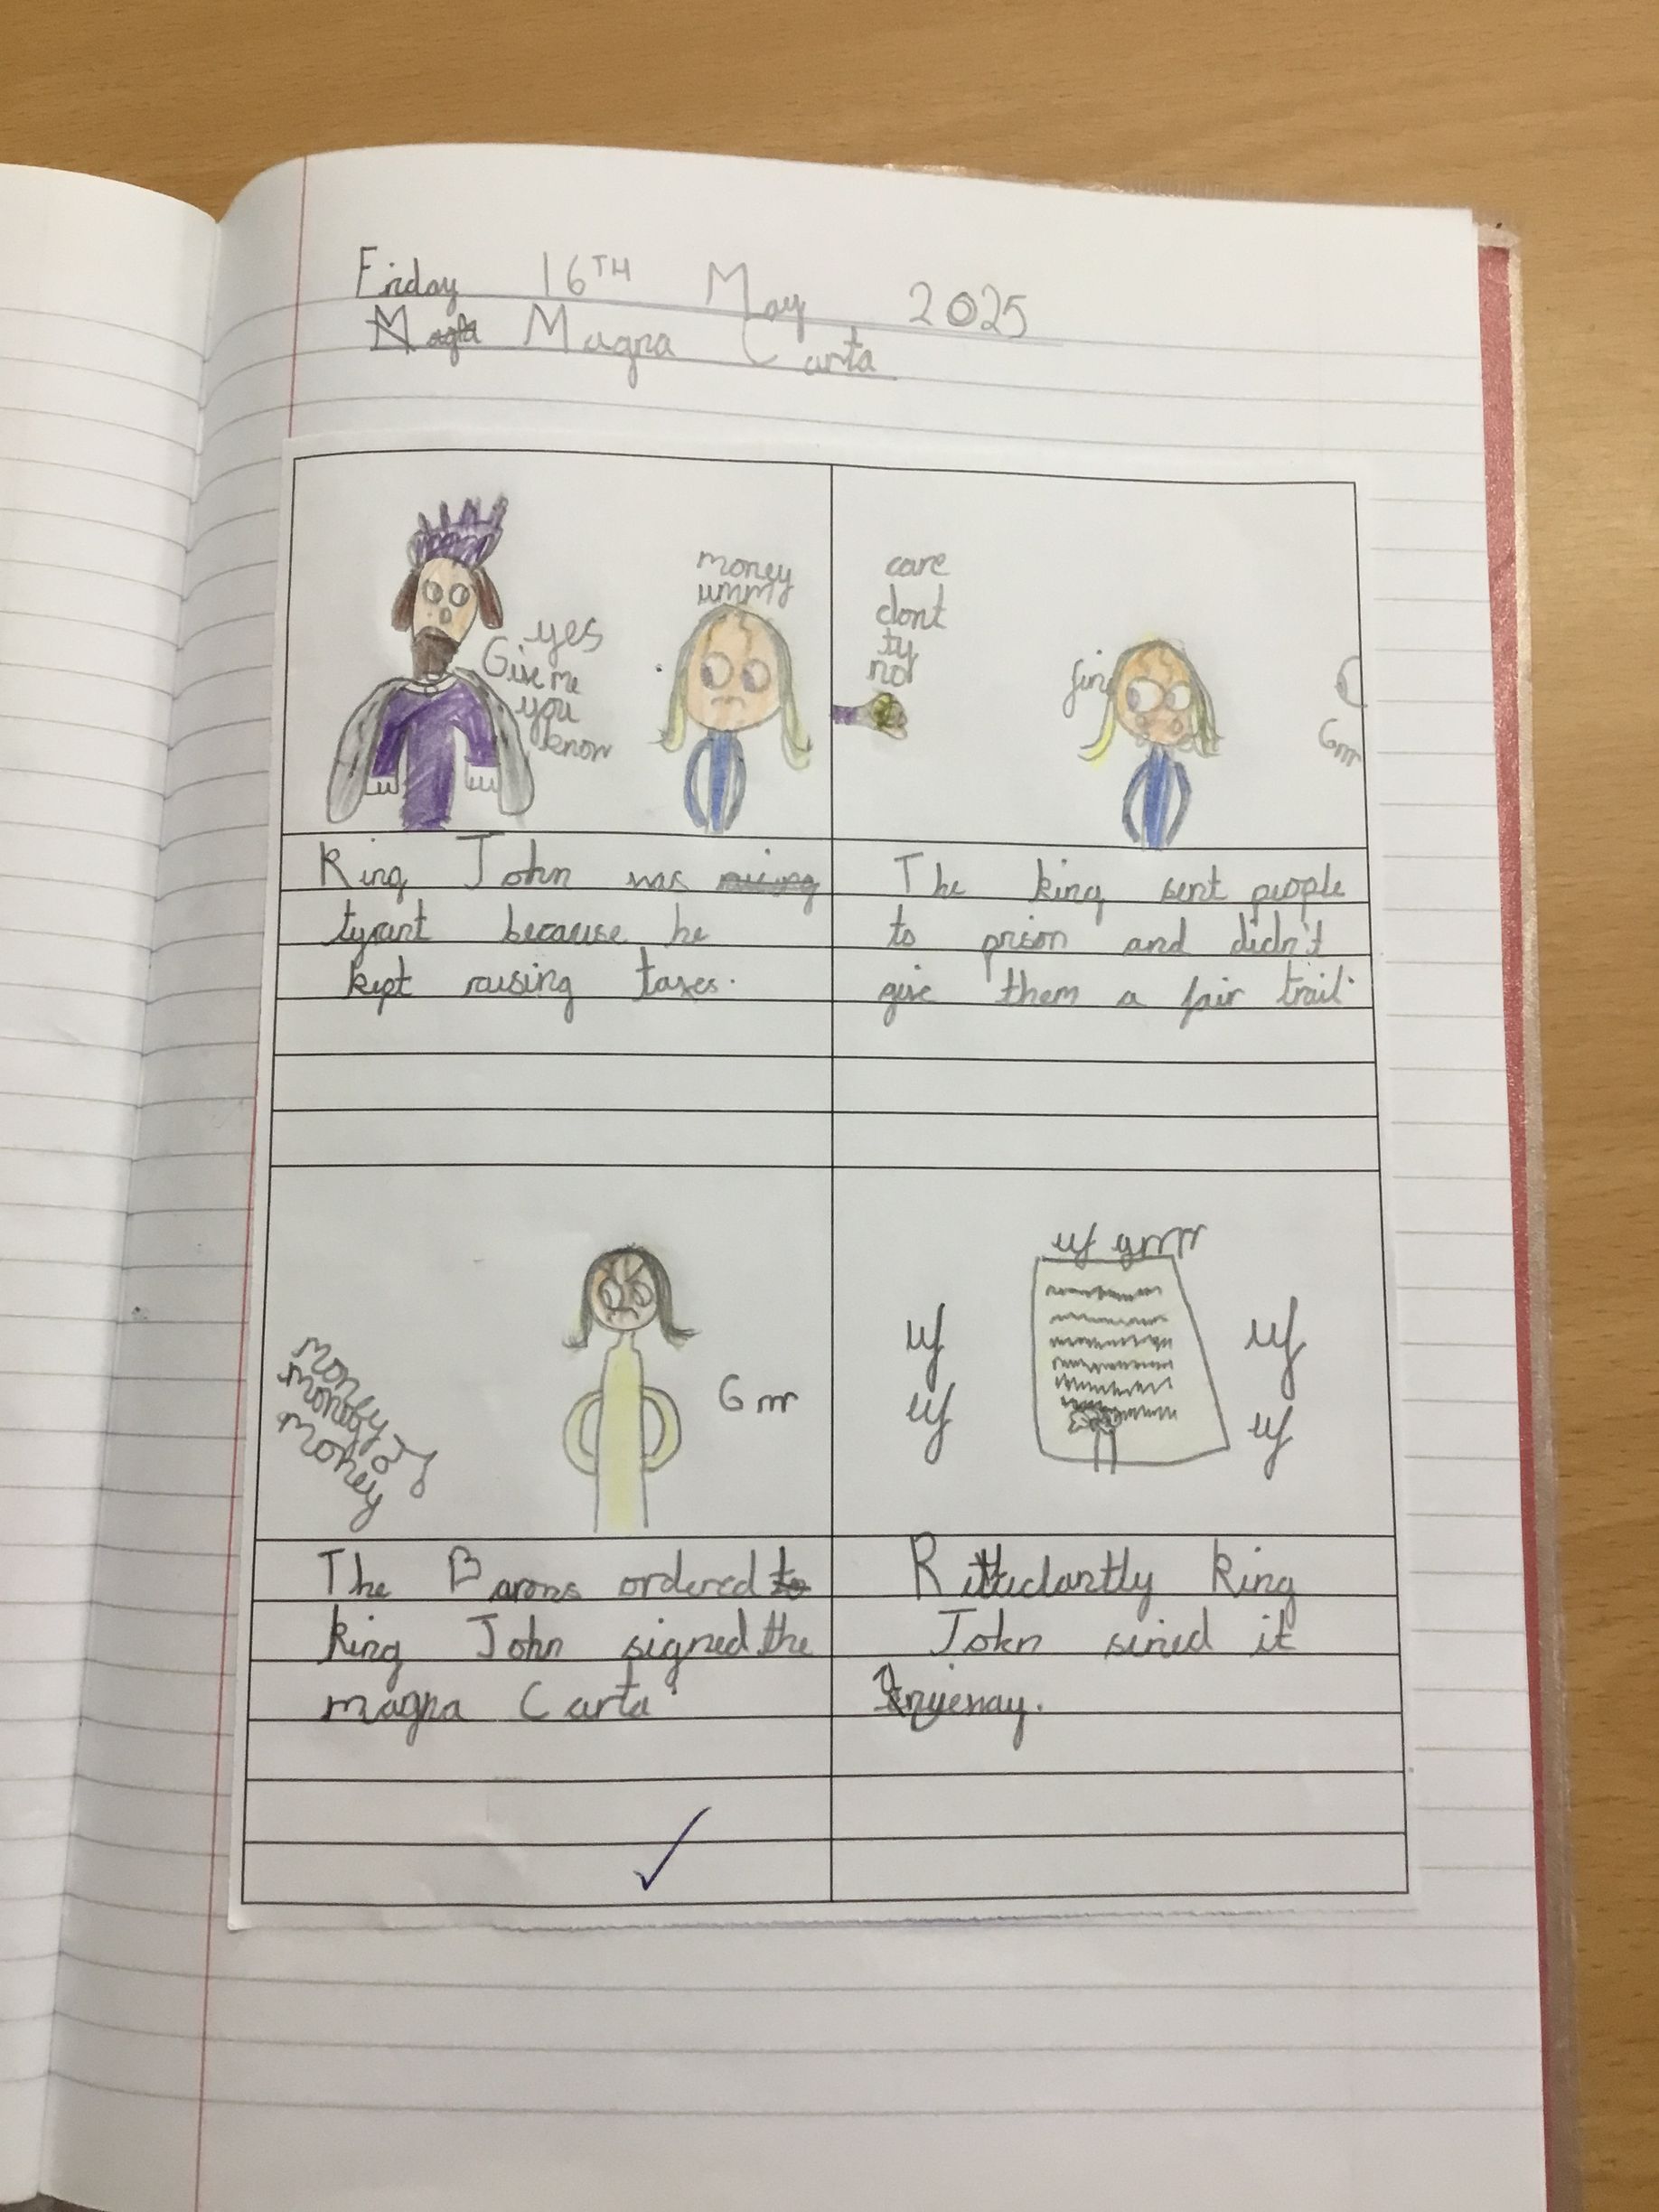 Friday 16TH May 2025
Magna Carta
yes
Give me
you
know
money
ummy
care
dont
ty
not
Grrr
King John was
tyrant because he
kept raising taxes.
The king sent people
to prison and didn't
give them a fair trail.
money
money
money
Grrr
uf grrrr
uf
uf
uf
uf
The Barons ordered to
king John signed the
magna Carta
king
John sined it